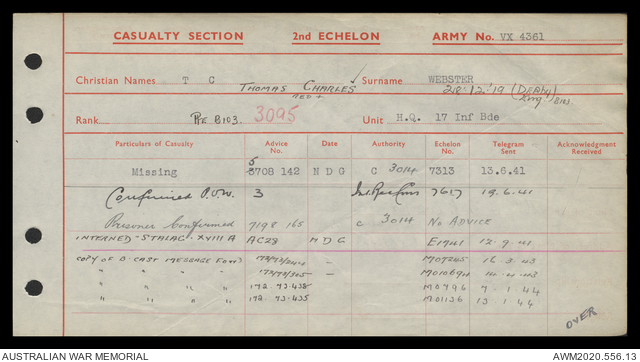 CASUALTY SECTION 2nd ECHELON ARMY No. VX 4361
Christian Names T C Surname WEBSTER
THOMAS CHARLES 28.12.'19 (Derby) Eng.
Rank Pte B103. 3095 Unit H.Q. 17 Inf Bde
Particulars of Casualty Advice No. Date Authority Echelon No. Telegram Sent Acknowledgment Received
Missing 5708 142 NDG C 3014 7313 13.6.41
Confirmed P.O.W. 3 7617 19.6.41
Prisoner Confirmed 7198 165 C 3014 No Advice
INTERNED - STALAG - XVIII A AC28 NDG E1741 12.9.41
COPY OF B.CAST MESSAGE FORM – M07245 16.3.43
" " " – M010694 14.4.43
" " " 172.73.438 M0796 7.1.44
" " " 172.73.435 M01136 13.1.44
OVER
AUSTRALIAN WAR MEMORIAL AWM2020.556.13